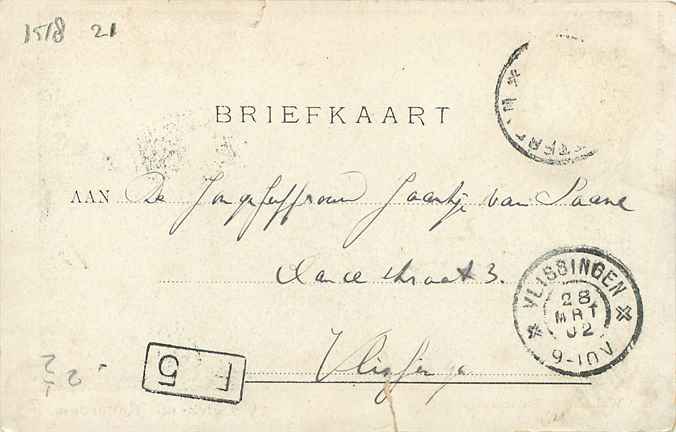 1518 21
BRIEFKAART
AAN De Jongejuffrouw Jaantje van Saane
straat 3.
Vlissingen
VLISSINGEN
28
MRT
02
9-10V
F
5